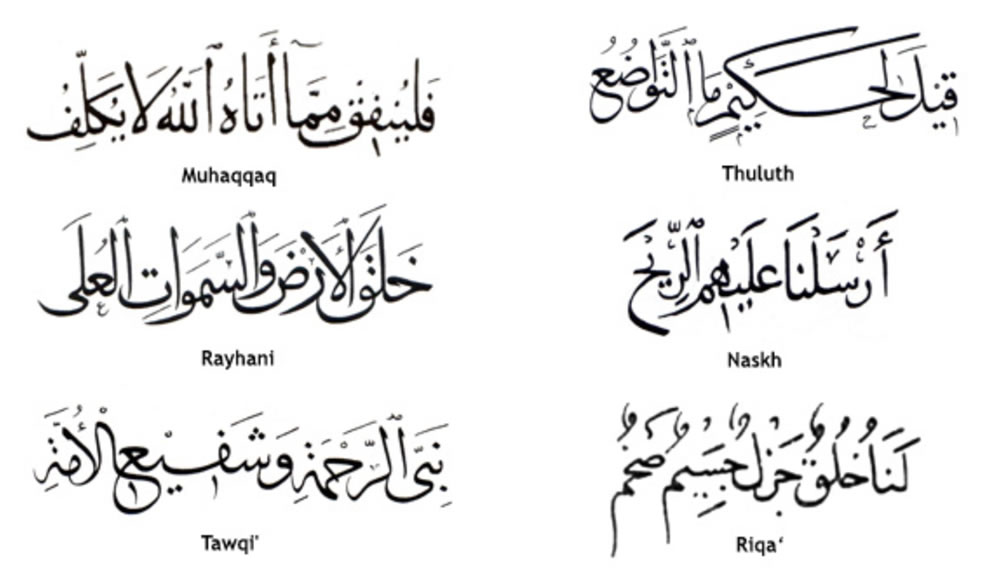 فَلْيُنفِقْ مِمَّا أَتَاهُ اللَّهُ لَا يُكَلِّفُ
Muhaqqaq
قِيلَ لِحَكِيمٍ مَا التَّوَاضُعُ
Thuluth
خَلَقَ الْأَرْضَ وَالسَّمَوَاتِ الْعُلَى
Rayhani
أَرْسَلْنَا عَلَيْهِمُ الرِّيحَ
Naskh
نَبِيِّ الرَّحْمَةِ وَشَفِيعِ الْأُمَّةِ
Tawqi'
لَنَا خُلُقٌ جَزْلٌ جَسِيمٌ ضَخْمٌ
Riqa‘